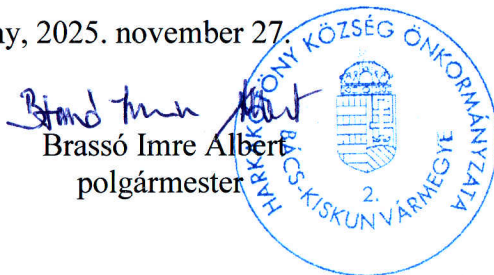 ny, 2025. november 27.
Brassó Imre Albert
Brassó Imre Albert
polgármester
HARKAKÖTÖNY KÖZSÉG ÖNKORMÁNYZATA
BÁCS-KISKUN VÁRMEGYE
2.